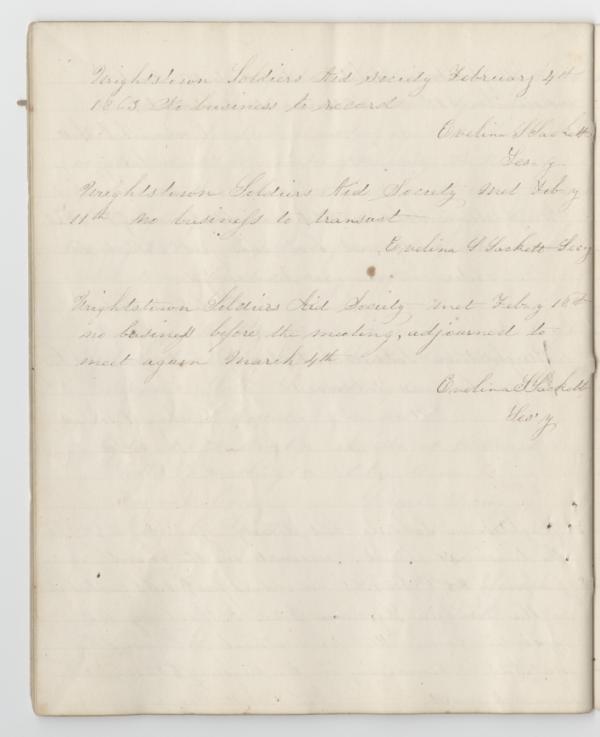 Wrightstown Soldiers Aid Society February 4th
1863 No business to record
Evelina S Sackett
Secy
Wrightstown Soldiers Aid Society met Feb.y
11th no business to transact
Evelina S Sackett Secy
Wrightstown Soldiers Aid Society met Feb.y 18th
no business before the meeting, adjourned to
meet again March 4th
Evelina S Sackett
Secy